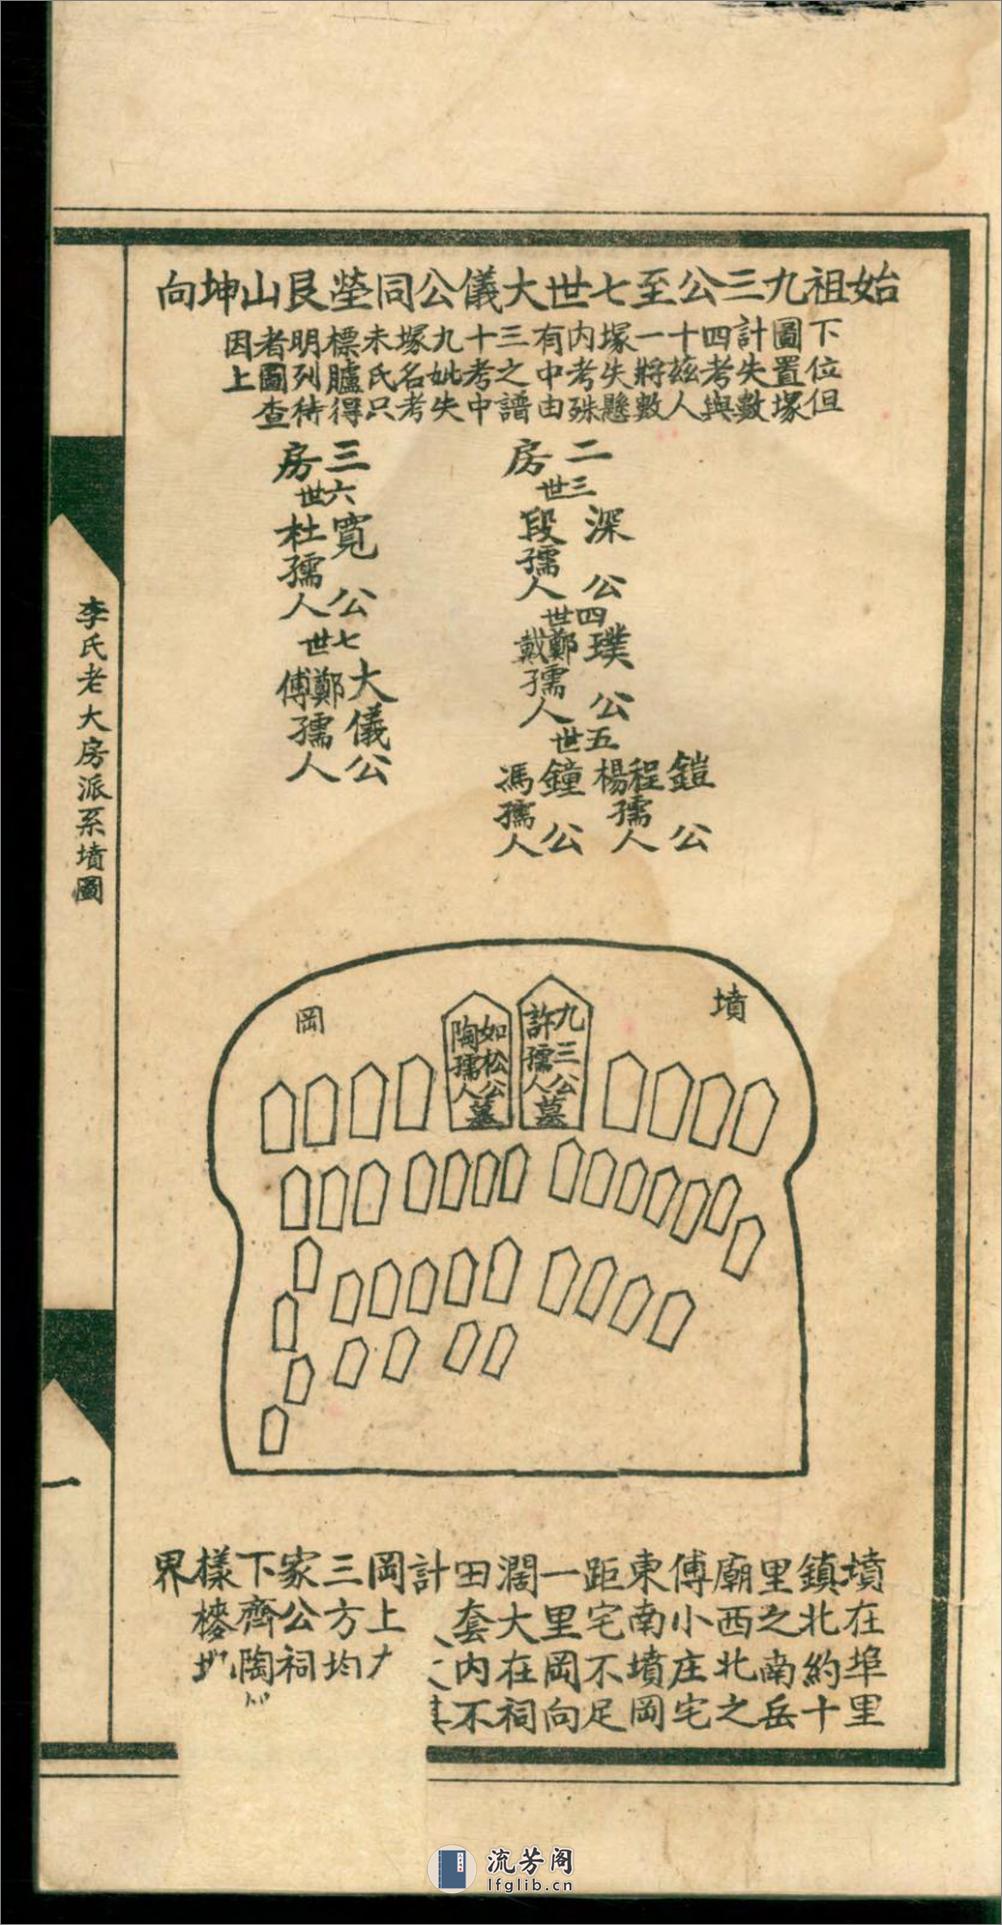 始祖九三公至七世大儀公同塋艮山坤向
下位但
圖置塚
計失數
四考與
十茲人
一將數
塚失懸
內考殊
有中由
三之譜
十考中
九妣失
塚名考
未氏只
標臚得
明列待
者圖查
因上
二房
三世
深公
段孺人
四世
璞公
鄭戴孺人
五世
鎧公
程楊孺人
鐘公
馮孺人
三房
六世
寬公
杜孺人
七世
大儀公
鄭傅孺人
墳
岡
九三公
許孺人
墓
如松公
陶孺人
墓
墳在埠里
鎮北約十
里之南岳
廟西北之
傅小庄宅
東南墳岡
距宅不足
一里岡向
濶大在祠
田套內不
計
岡上
三方均
家公祠
下齊陶
樣
界
李氏老大房派系墳圖
一
流芳阁
lfglib.cn